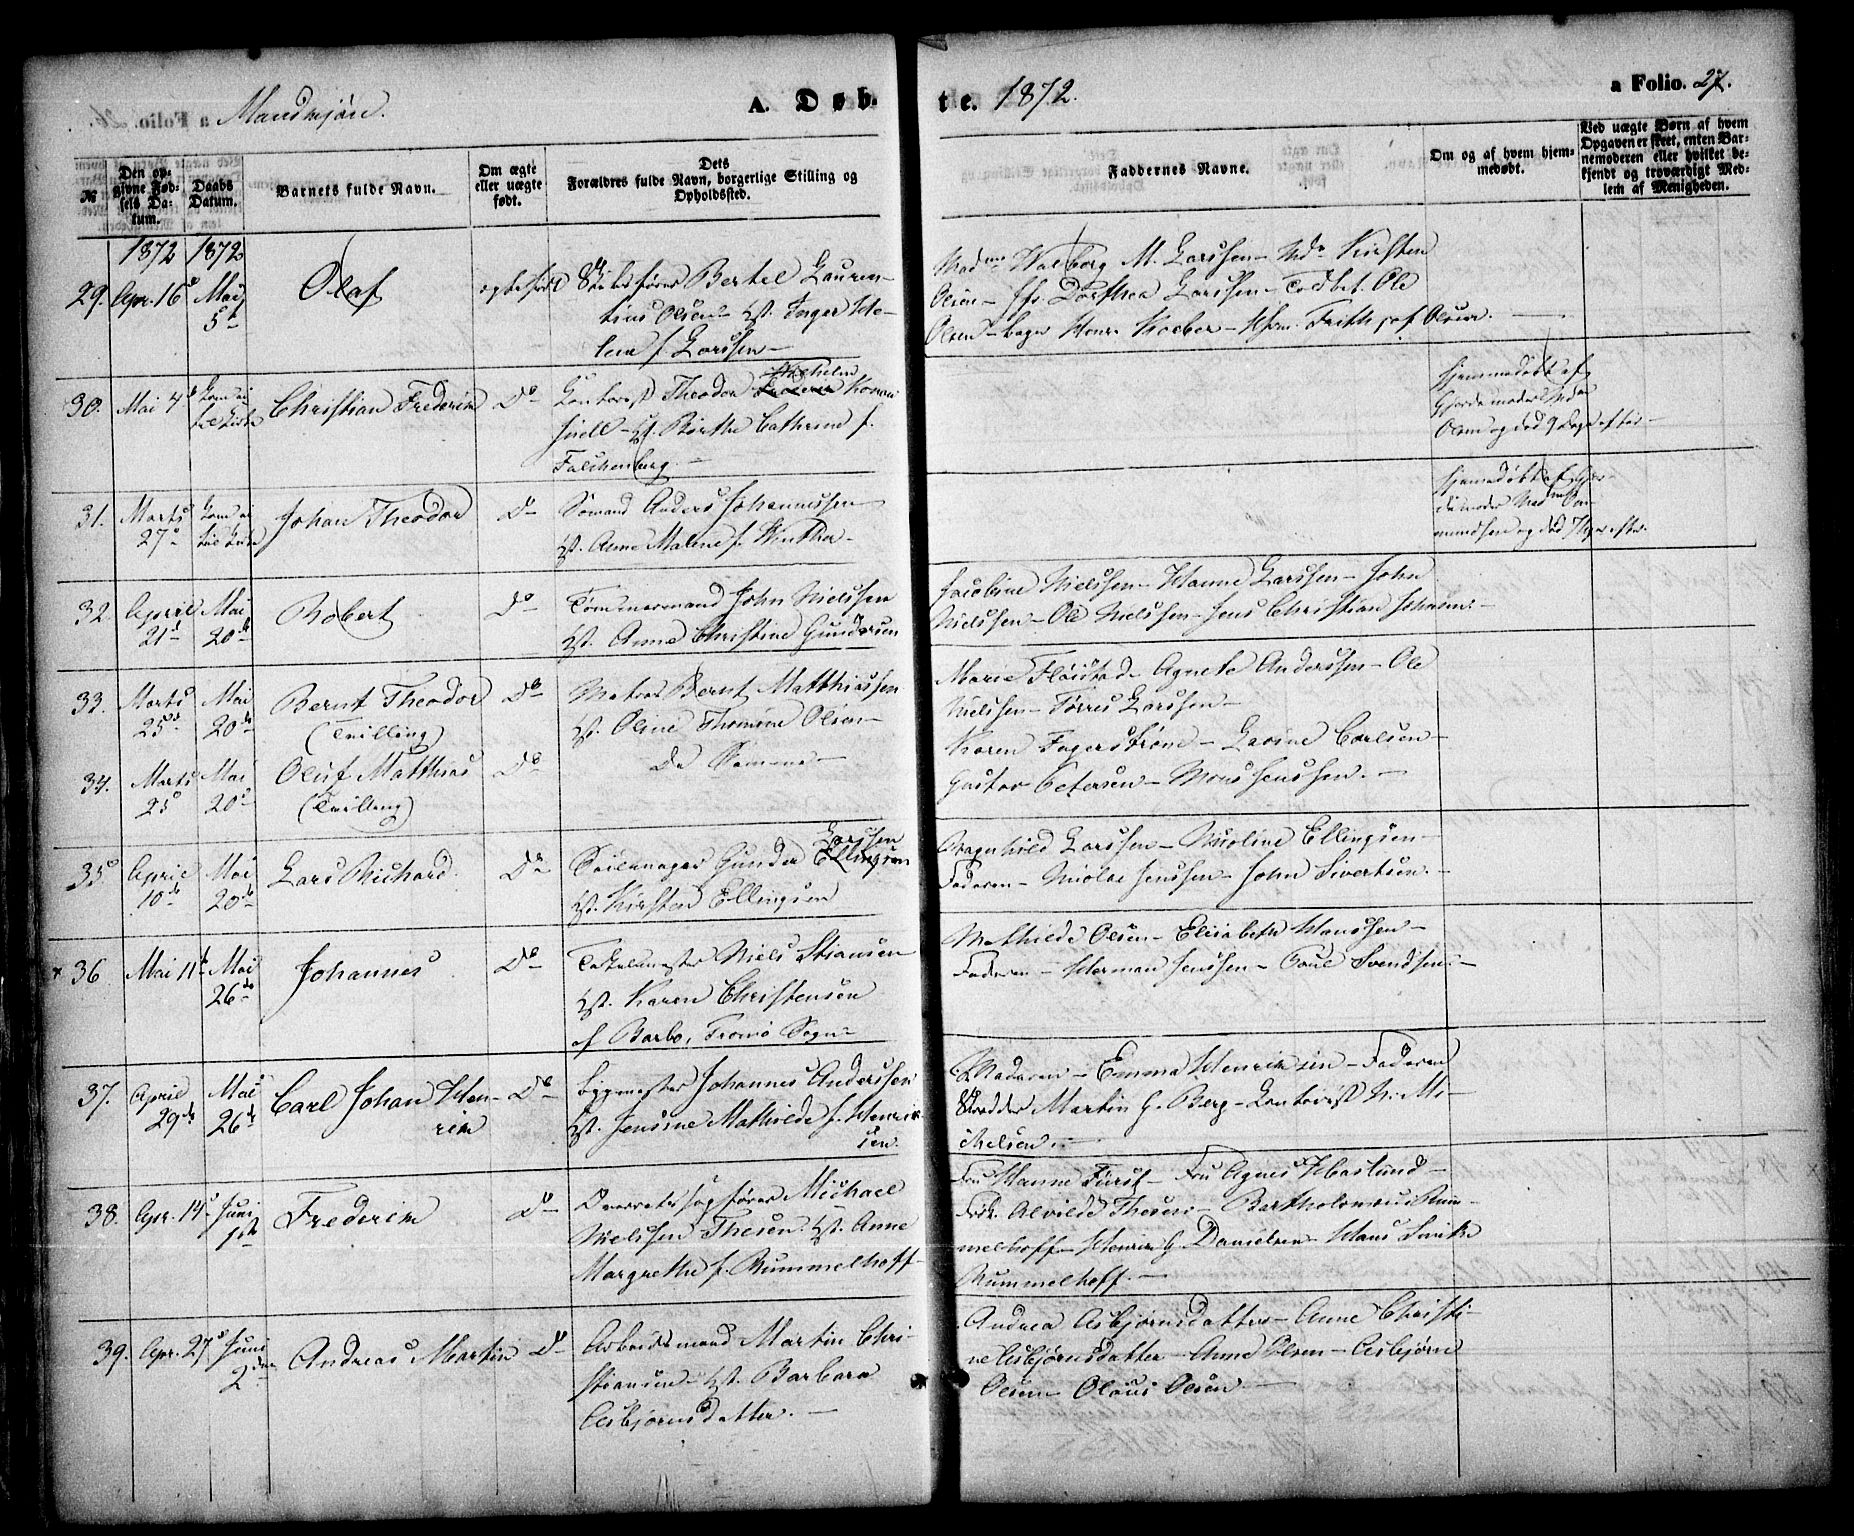 Mandkjøn.
A. Døbte. 1872.
a Folio. 27.
№
Den opgivne Fødsels Datum.
Daabs Datum.
Barnets fulde Navn.
Om ægte eller uægte født.
Dets Forældres fulde Navn, borgerlige Stilling og Opholdssted.
Faddernes Navne.
Om og af hvem hjemmedøbt.
Ved uægte Børn af hvem Opgaven er skeet, enten Barnemoderen eller hvilket bekjendt og troværdigt Medlem af Menigheden.
1872 1872
29. Apr. 16 Mai 5 Olaf ægtefødt
Bertel Lauren-
tius Olsen - H. Inger He-
lene f. Larssen -
Walborg M. Larssen - Kirsten
Olsen - Dorthea Larssen - Ole
Olsen - Frithjof Olsen. -
30. Mai 4 til Kirke Christian Frederik Do
Contorist Theodor Wilhelm
H. Birthe Cathrine f.
Falchenberg. -
Hjemmedøbt af
Gjordemoder
Olsen og død 9 Dage efter -
31. Marts 27 Johan Theodor Do
Sømand Anders Johannessen
H. Anne Malene f. Winther -
Hjemmedøbt af Gjor-
demoder Mad
mundsen og død
32. April 21 Mai 20 Robert Do
Tømmermand John Nielssen
H. Anne Christine Gundersen
Jacobine Nielssen - Hanne Larssen - John
Nielssen - Ole Nielssen - Jens Christian
33. Marts 25 Mai 20 Bernt Theodor (Tvilling) Do
Matros Bernt Matthiassen
H. Oline Thomine Olsen -
Marie Fløistad - Agnete Anderssen - Ole
Nielssen - Tørres Larssen -
34. Marts 25 Mai 20 Oluf Matthias (Tvilling) Do
De Samme -
Karen Fagerstrøm - Lavine Carlsen -
Gustav Petersen - Mons Jenssen. -
35 April 10 Mai 20 Lars Richard Do
Seilmager Gunder Larssen
H. Kirsten Ellingsen
Ragnhild Larssen - Nicoline Ellingsen -
Faderen - Nicolai Jenssen - John Sivertsen. -
36 Mai 11 Mai 26 Johannes Do
Takelmester Niels Stiansen
H. Karen Christensen
af Barbo, Tromø Sogn -
Mathilde Olsen - Elisabeth Hanssen -
Faderen - Herman Jenssen - Poul Svendsen. -
37. April 29 Mai 26 Carl Johan Hen-
rik Do
Bygmester Johannes Anderssen
H. Jensine Mathilde f. Henrik-
sen.
Moderen - Emma Henriksen - Faderen
Skredder Martin G. Berg - Contorist N. Mi-
chelsen. -
38. Apr. 14 Juni 1 Frederik Do
Overretssagfører Michael
Nielssen Thesen. H. Anne
Margrethe f. Rummelhoff -
Fru Hanne Fürst - Fru Agnes Haslund -
Frk. Alvilde Thesen - Bartholomæus Rum-
melhoff - Henrik G Danielsen - Hans Sinke
Rummelhoff. -
39. Apr. 27 Juni 2 Andreas Martin Do
Arbeidsmand Martin Chri-
stiansen - H. Barbara
Asbjørnsdatter. -
Andrea Asbjørnsdatter - Anne Christi-
ne Asbjørnsdatter - Anne Olsen - Asbjørn
Olsen - Olaus Olsen. -